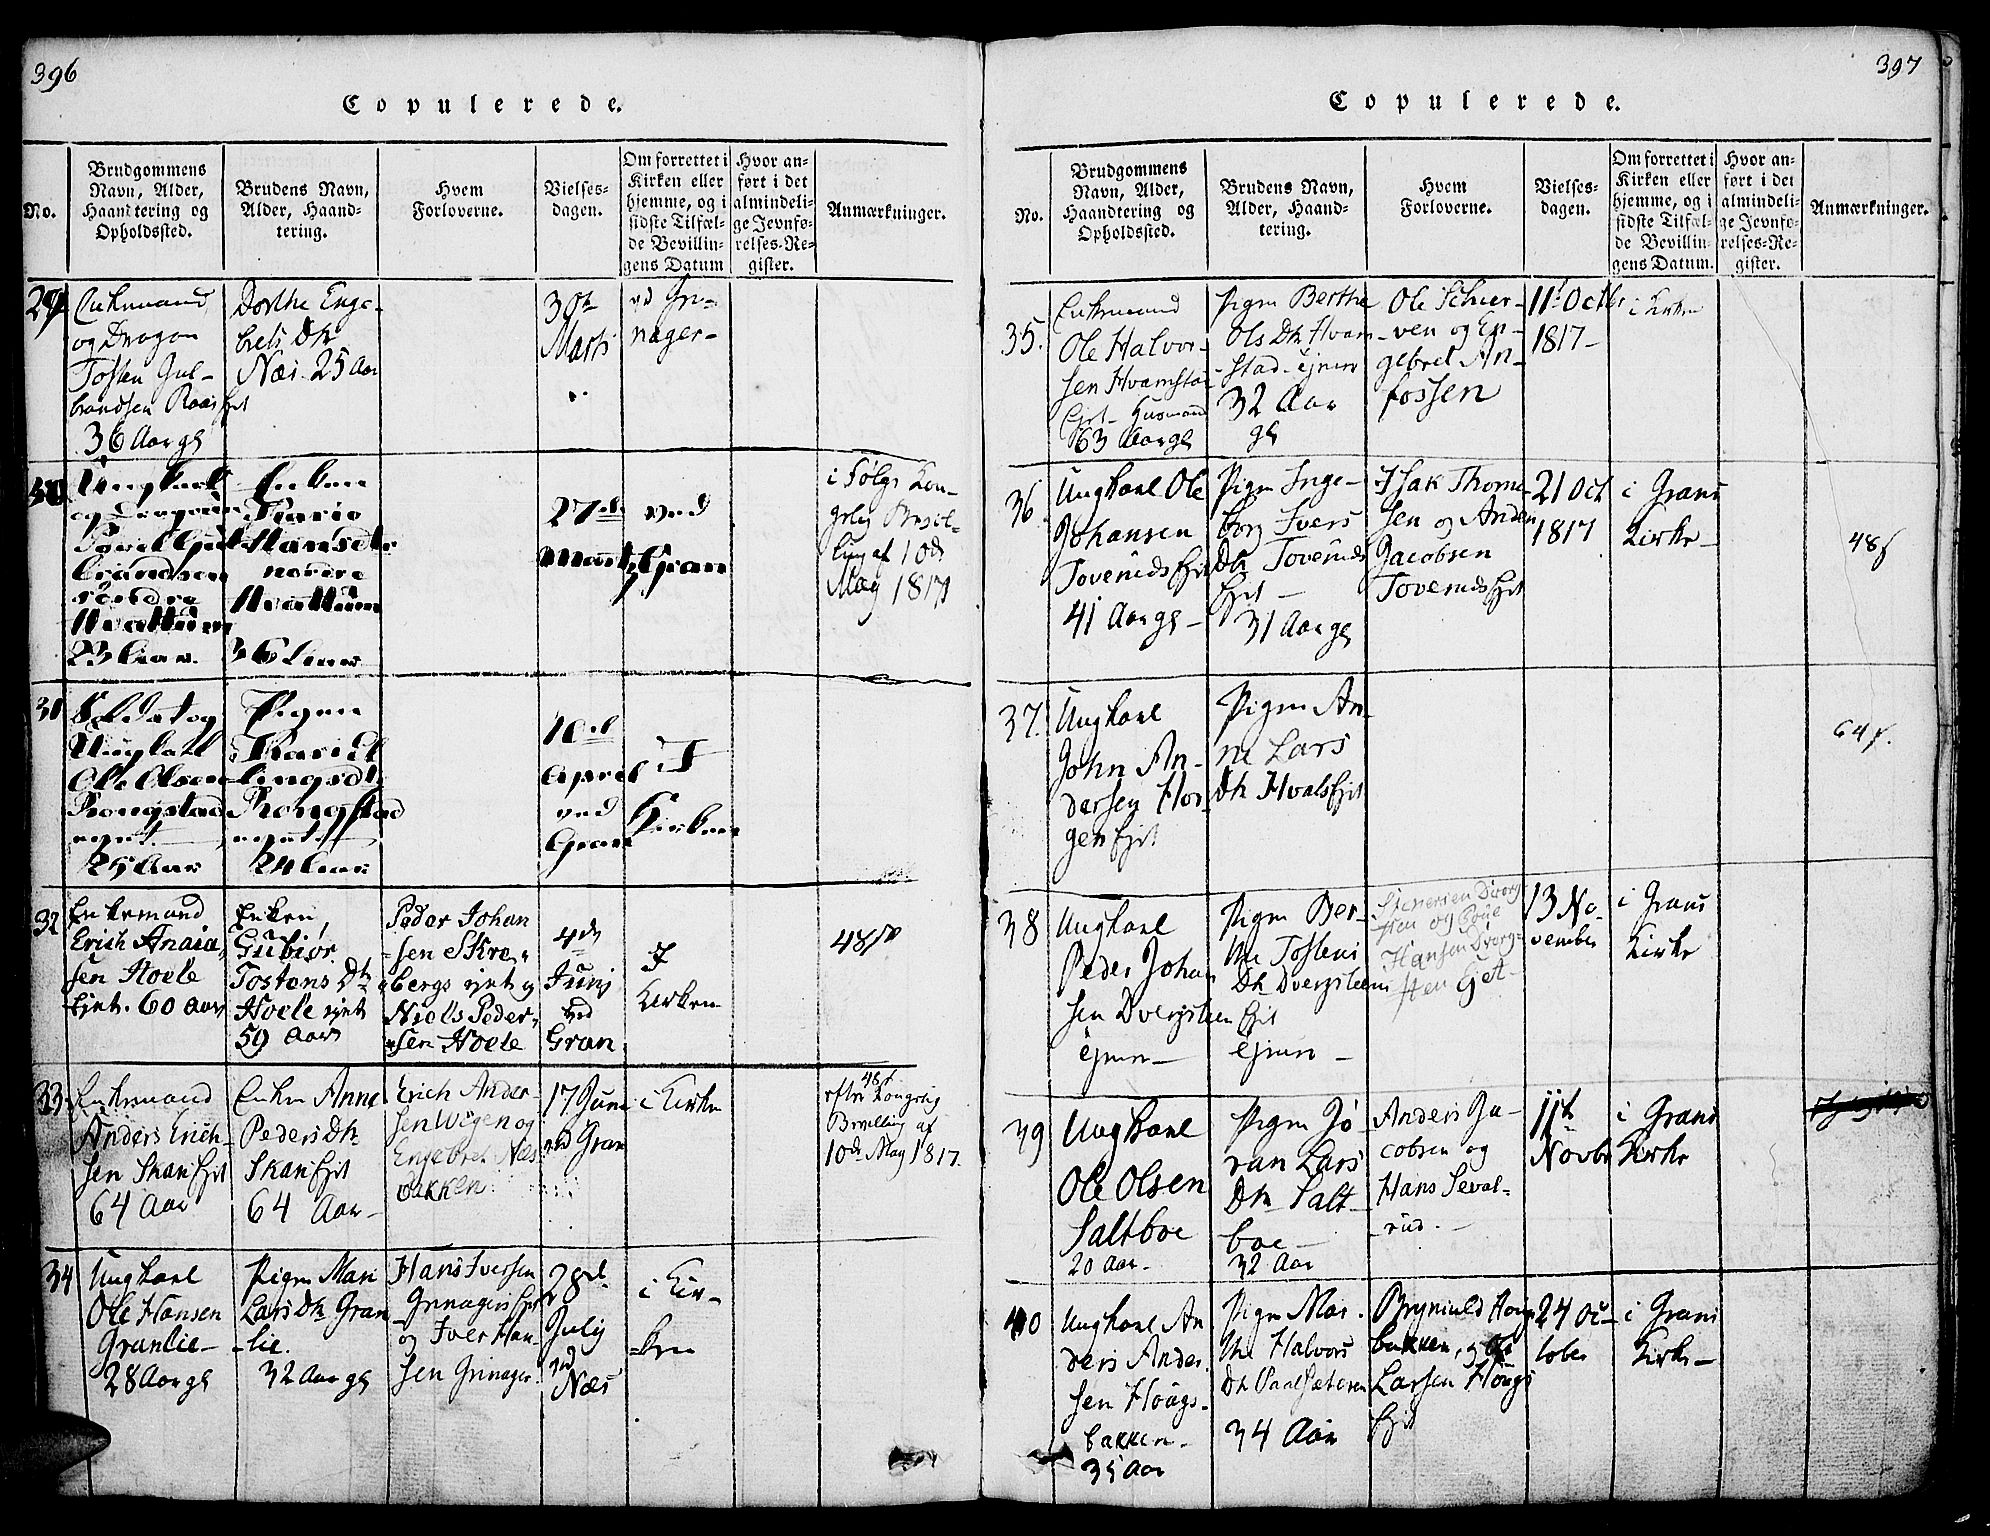 396
Copulerede.
No.
Brudgommens
Navn, Alder,
Haandtering og
Opholdssted.
Brudens Navn,
Alder, Haand-
tering.
Hvem
Forloverne.
Vielses-
dagen.
Om forrettet i
Kirken eller
hjemme, og i
sidste Tilfæl-
de Bevillin-
gens Datum
Hvor an-
ført i det
almindeli-
ge Jevnfø-
relses-Re-
gister.
Anmærkninger.
29
Enkemand
og Dragon
Tosten Gul-
brandsen Raas Ejet
36 Aar gl
Dorthe Enge-
brets Dtr
Næs 25 Aar
30te
Marti
30
Ungkarl
Gul-
brandsen
søndre
Hvattum
23 Aar.
Enken
Marie
Hansdtr
nordre
Hvattum
36 Aar
27de
Marti
ved
Gran
i Følge Kon-
gelig Bevil-
ling af 10de
May 1817
31
Soldat og
Ungkarl
Ole Olsen
Rongstad
eyet.
25 Aar
Pigen
Rongstad
eyet
24 Aar
10de
April
ved
Gran
I
Kirken
32
Enkemand
Erich
sen Hoele
Ejet. 60 Aar
Enken,
Gubiør
Tostens Dtr
Hoele ejet
59 Aar
Peder Johan
sen Skre-
bergs ejet og
Niels Peder-
sen Hoele
4de
Junj
ved
Gran
I
Kirken
48 s
33
Enkemand
Anders Erich-
sen Skan Ejet
64 Aar
Enken Anne
Peders Dtr
Skan Ejet
64 Aar
Erich Ander-
sen Wøyen og
Engebret Næs-
bakken
17 Juni
ved Gran
i Kirken
48 s
efter Kongelig
Bevilling af
10de May 1817.
34
Ungkarl
Ole Hansen
Granlie-
28 Aar gl
Pigen Mari
Lars Dtr Gran
lie.
32 Aar gl
Hans Iversen
Grinagers Ejet
og Iver Han-
sen Grinager
28de
July
ved
Næs
i Kir-
ken
397
Copulerede.
No.
Brudgommens
Navn, Alder,
Haandtering og
Opholdssted.
Brudens Navn,
Alder, Haand-
tering.
Hvem
Forloverne.
Vielses-
dagen.
Om forrettet i
Kirken eller
hjemme, og i
sidste Tilfæl-
de Bevillin-
gens Datum.
Hvor an-
ført i det
almindeli-
ge Jevnfø-
relses-Re-
gister.
Anmærkninger.
35.
Enkemand
Ole Halvor-
sen Hvamstad
Ejet Husmand
63 Aar gl
Pigen Berthe
Ols Dtr Hvam
stad-ejen
32 Aar
gl
Ole Schier-
ven og En-
gebret An-
fossen
11te Octbr
1817-
i Kirken
36.
Ungkarl Ole
Johansen
Toverud Ejet
41 Aar gl-
Pigen Inge-
borg Ivers
Dtr Toveruds
Ejet-
31 Aar gl
Isak Thome-
sen og Anders
Jacobsen
Toveruds Ejet
21 Oct
1817
i Grans
Kirke-
48 s
37.
Ungkarl
John An-
dersen Hor-
gen Ejet
Pigen An-
ne Lars
Dtr Hvals Ejet
64 s.
38
Ungkarl
Peder Johan
sen Dvergsteen
Ejnen-
Pigen Ber-
the Tostens
Dtr Dvergsteens
Ejet
Ejnen-
Hansen Dverg-
sten Ejet-
13 No-
vember
i Grans
Kirke
39
Ungkarl
Ole Olsen
Saltboe
20 Aar.
Pigen Jø-
ran Lars
Dtr Salt-
boe-
32 Aar
Anders Ja-
cobsen og
Hans Seval-
rud.-
11te
Novbr
i Grans
Kirke
40
Ungkarl An
ders Ander-
sen Hougs-
bakken-
35 Aar
Pigen Mar-
the Halvors
Dtr Paalsæteren
34 Aar
Bryniuld Hougs
bakken, og Ole
Larsen Hougs
Ejet
24 Oc-
tober
i Grans
Kirke-